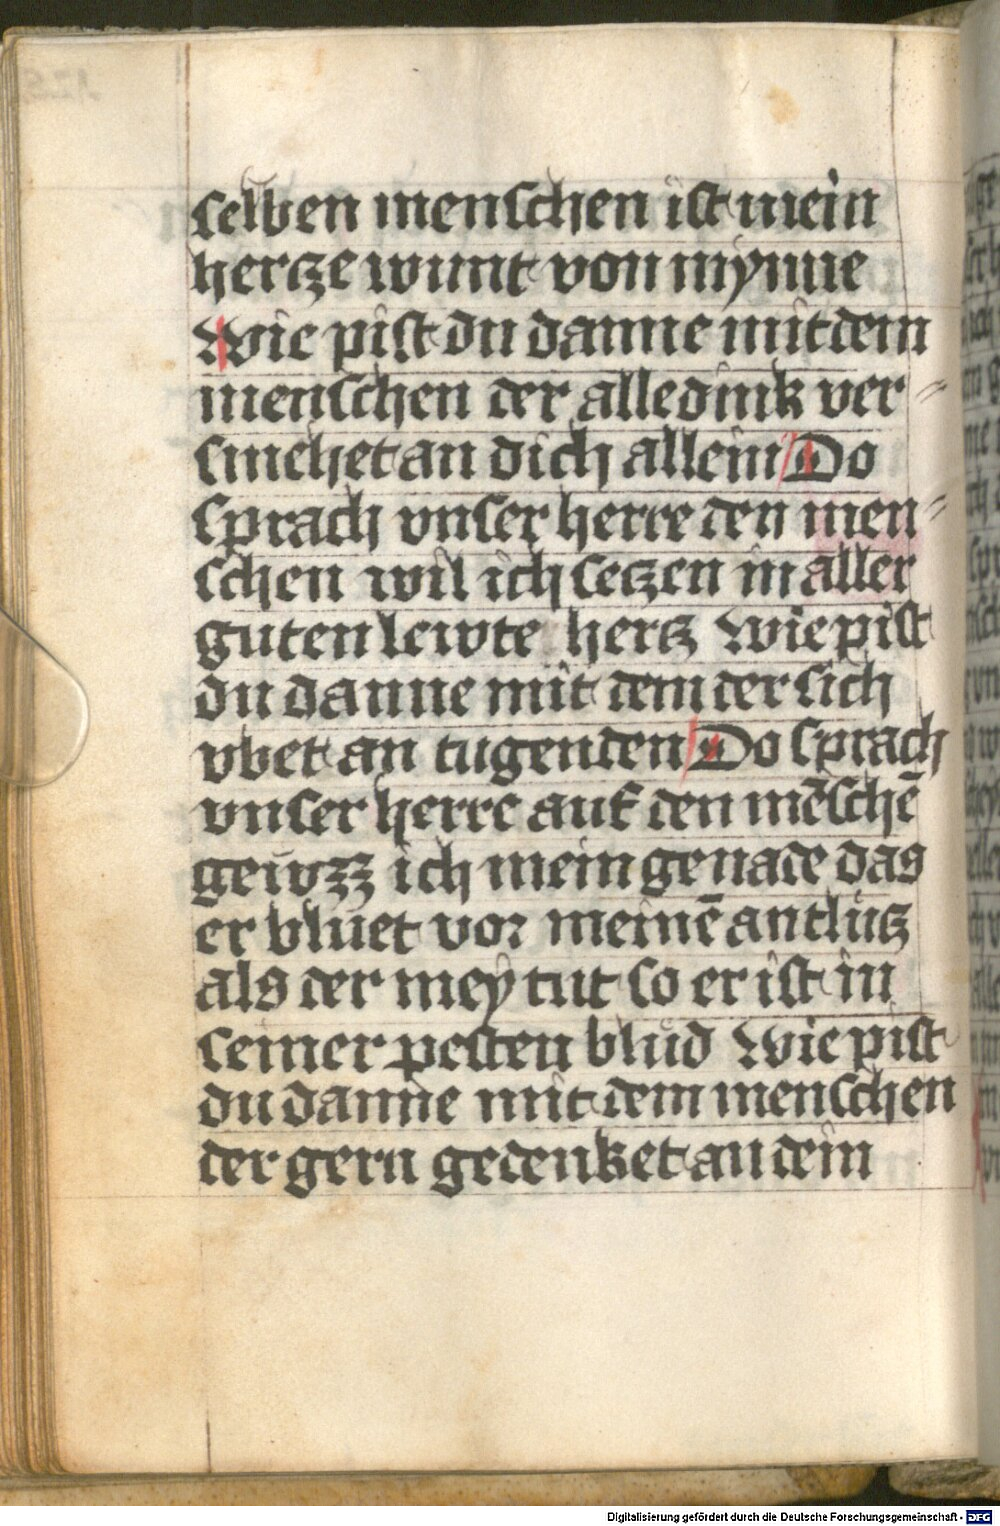 selben menschen ist mein
hertze wunt von mynne
Wie pist du danne mit dem
menschen der alle dink ver⸗
smehet an dich allein Do
sprach vnser herre den men⸗
schen wil ich setzen in aller
guten lewte hertz Wie pist
du danne mit dem der sich
vbet an tugenden Do sprach
vnser herre auf den mēschē
gewzz ich mein genade das
er bluet vor meinē antlutz
als der mey tut so er ist in
seiner pesten blud Wie pist
du danne mit dem menschen
der gern gedenket an dein
Digitalisierung gefördert durch die Deutsche Forschungsgemeinschaft - DFG